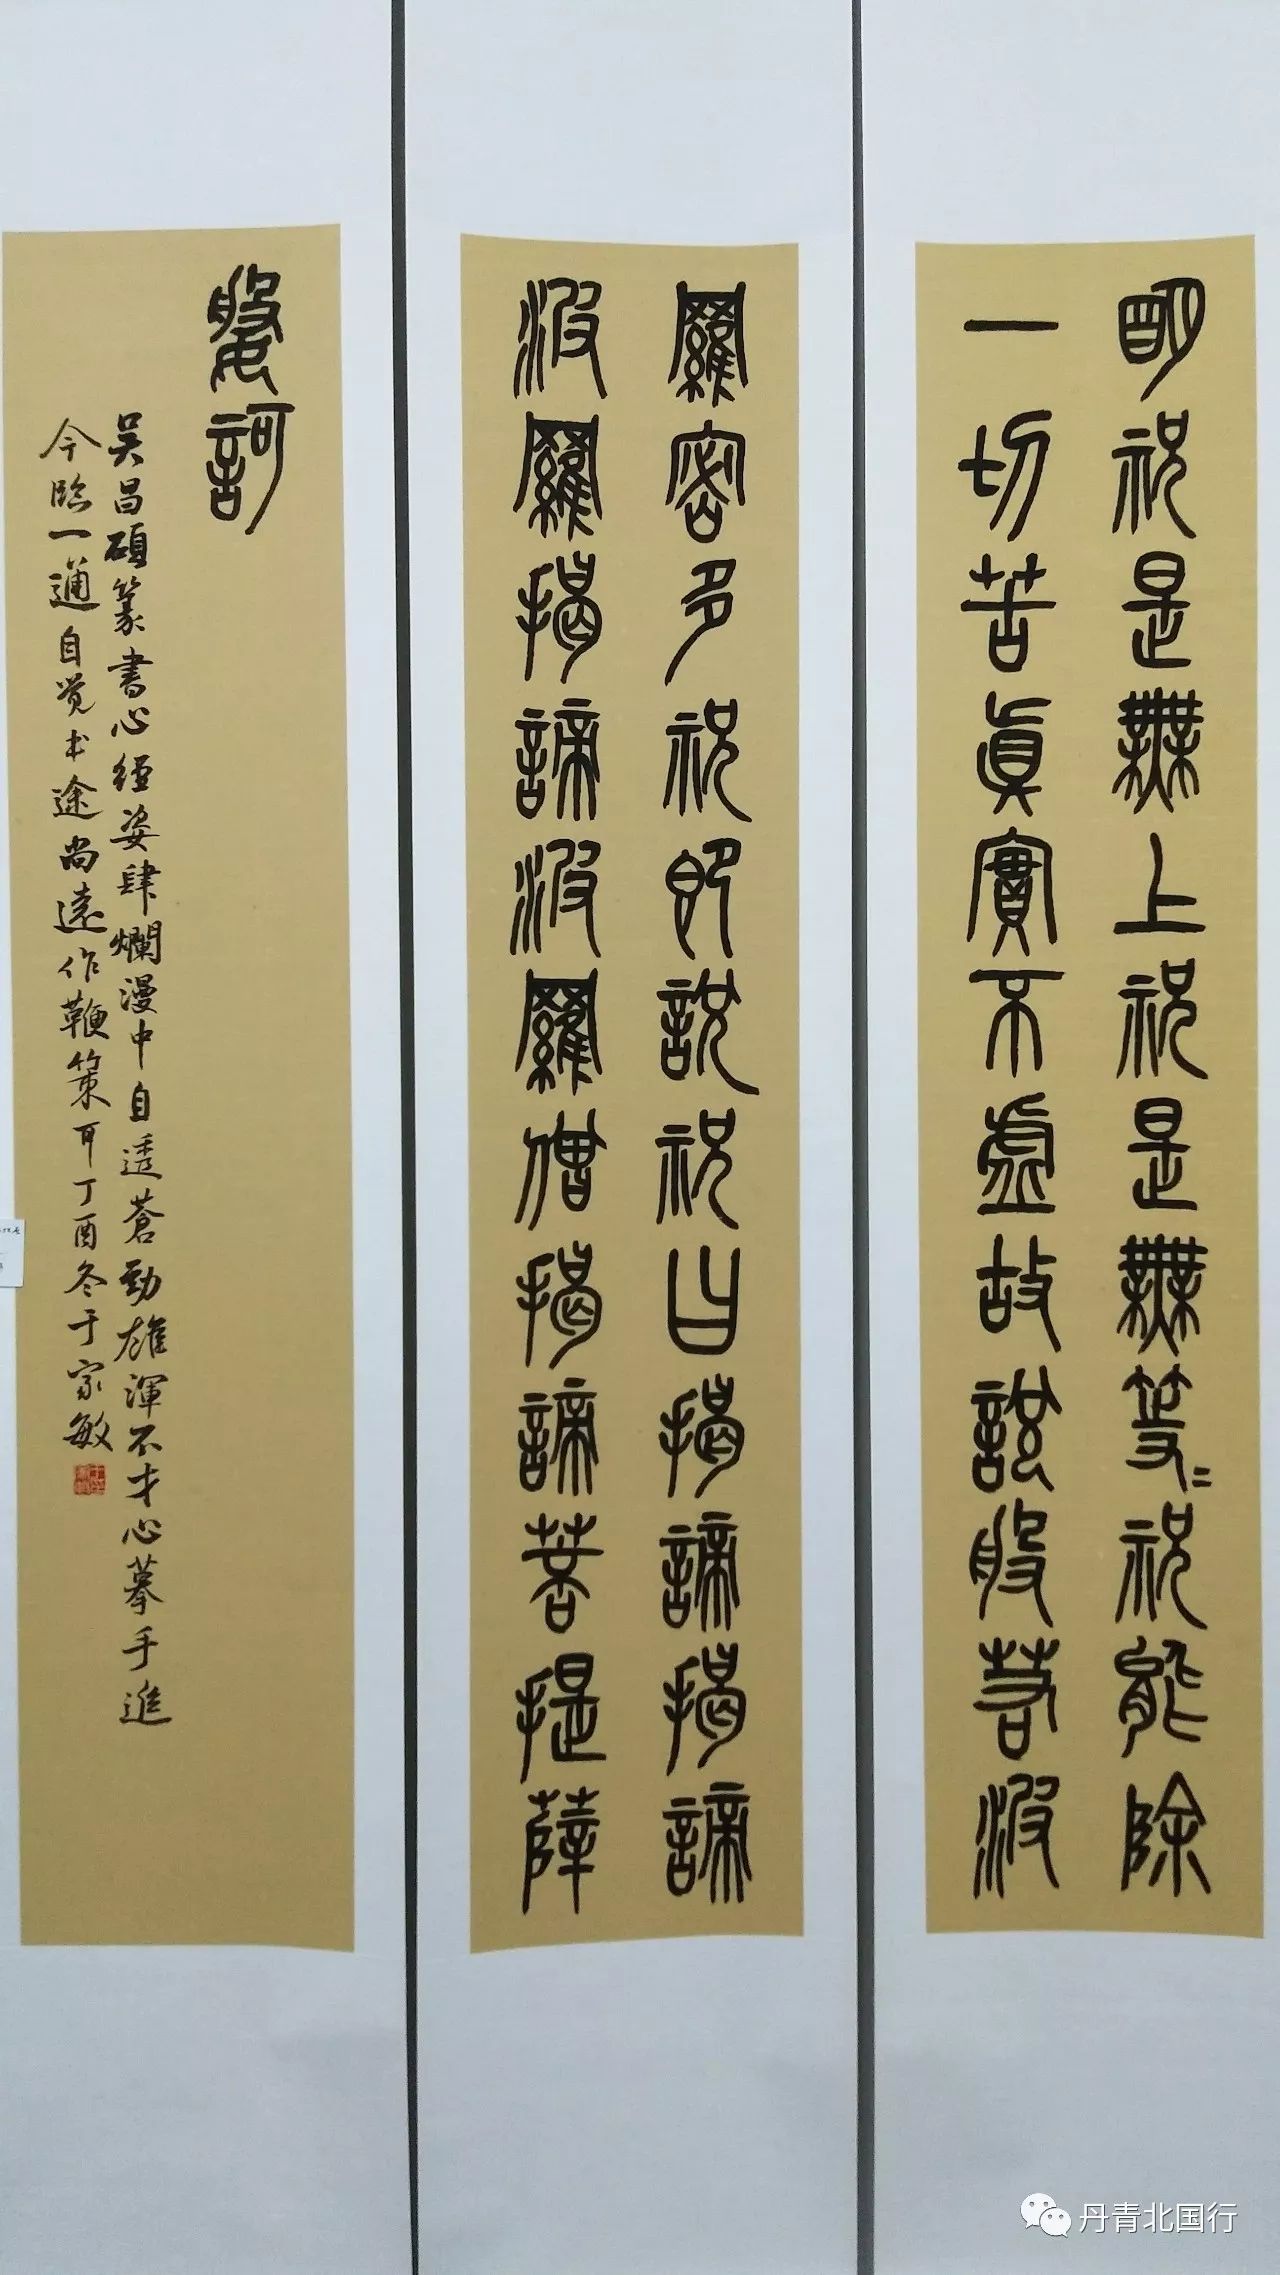 明祝是無上祝是無等=祝能除
一切苦真實不虛故說般若波
羅密多祝即說祝曰揭諦揭諦
波羅揭諦波羅僧揭諦菩提薩
婆訶
吴昌碩篆書心經姿肆爛漫中自透蒼勁雄渾不才心摹手追
今臨一通自觉書途尚遠作鞭策耳丁酉冬于家敏
丹青北国行